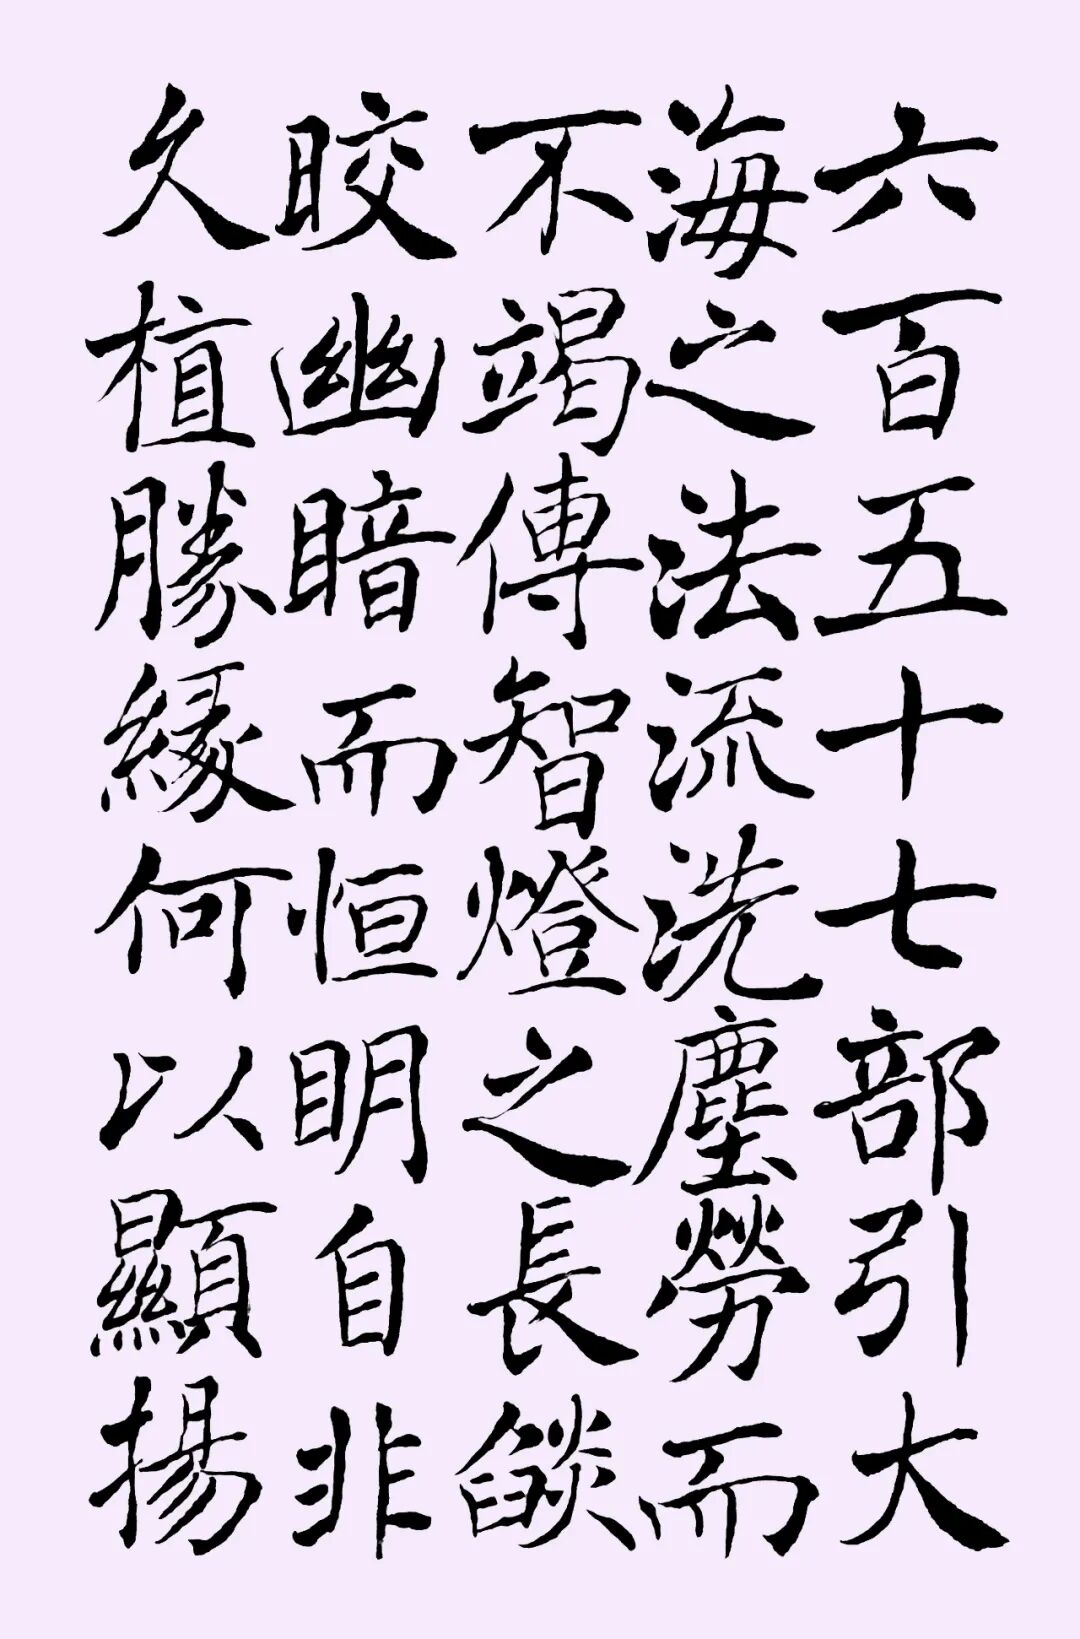 六百五十七部引大
海之法流洗塵勞而
不竭傳智燈之長燄
皎幽暗而恒明自非
久植勝緣何以顯揚